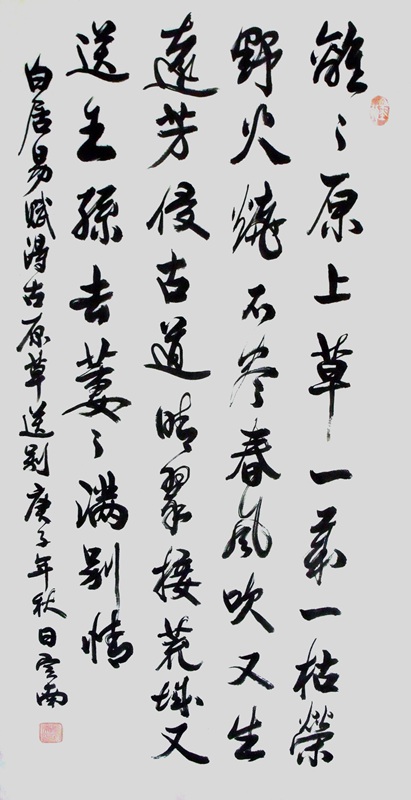 離〻原上草一歲一枯榮
野火燒不盡春風吹又生
遠芳侵古道晴翠接荒城又
送王孫去萋〻滿別情
白居易賦得古原草送別庚子年秋日雲南